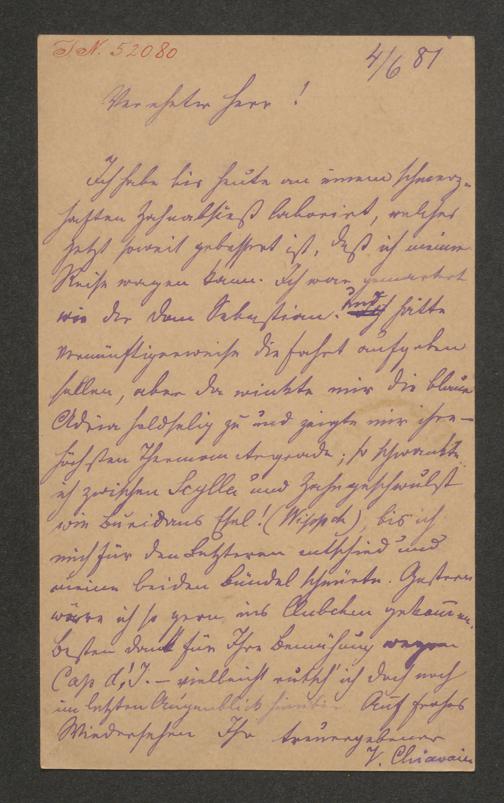 I. N. 52080
4/6 81
Verehrter Herr!
Ich habe bis heute an einem schmerz-
haften Zahnabsceß laborirt, welcher
jetzt soweit gebessert ist, daß ich meine
Reise wagen kann. Ich war gemartert
wie der Dom Sebastian. und hätte
vernünftigerweise die Fahrt aufgeben
sollen, aber da winkte mir die blaue
Adria holdselig zu und zeigte mir ihre
höchsten Thermometergrade; so schwankte
ich zwischen Scylla und Zahngeschwulst
wie Buridans Esel! bis ich
mich für den Letzteren entschied und
meine beiden Bündel schnürte. Gestern
wäre ich so gern ins Clubchen gekommen.
Besten Dank für Ihre Bemühung wegen
Capo d'I. — vielleicht rutsch' ich doch noch
im letzten Augenblick hinüber. Auf frohes
Wiedersehen Ihr treuergebener
V. Chiavacci